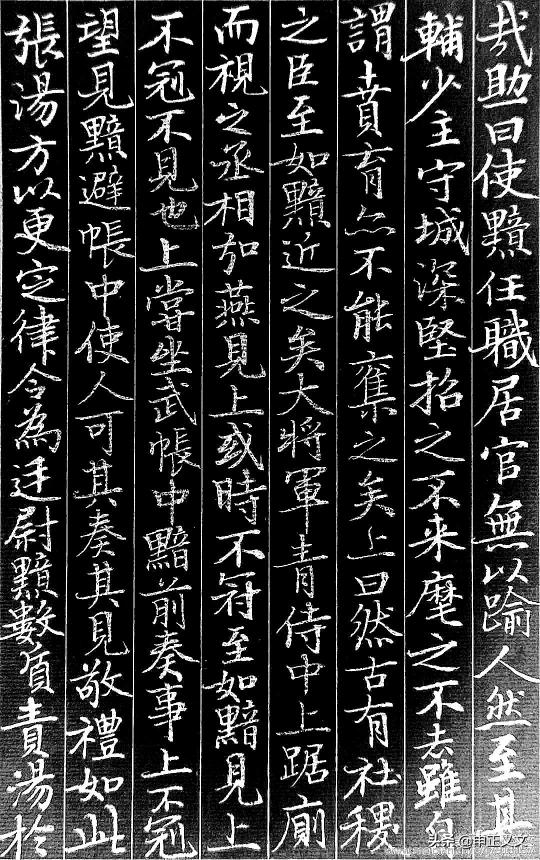 哉助曰使黯任職居官無以踰人然至其
輔少主守城深堅招之不来麾之不去雖自
謂賁育亦不能奪之矣上曰然古有社稷
之臣至如黯近之矣大將軍青侍中上踞廁
而視之丞相弘燕見上或時不冠至如黯見上
不冠不見也上嘗坐武帳中黯前奏事上不冠
望見黯避帳中使人可其奏其見敬禮如此
張湯方以更定律令為廷尉黯數質責湯於
头条 @申正义文